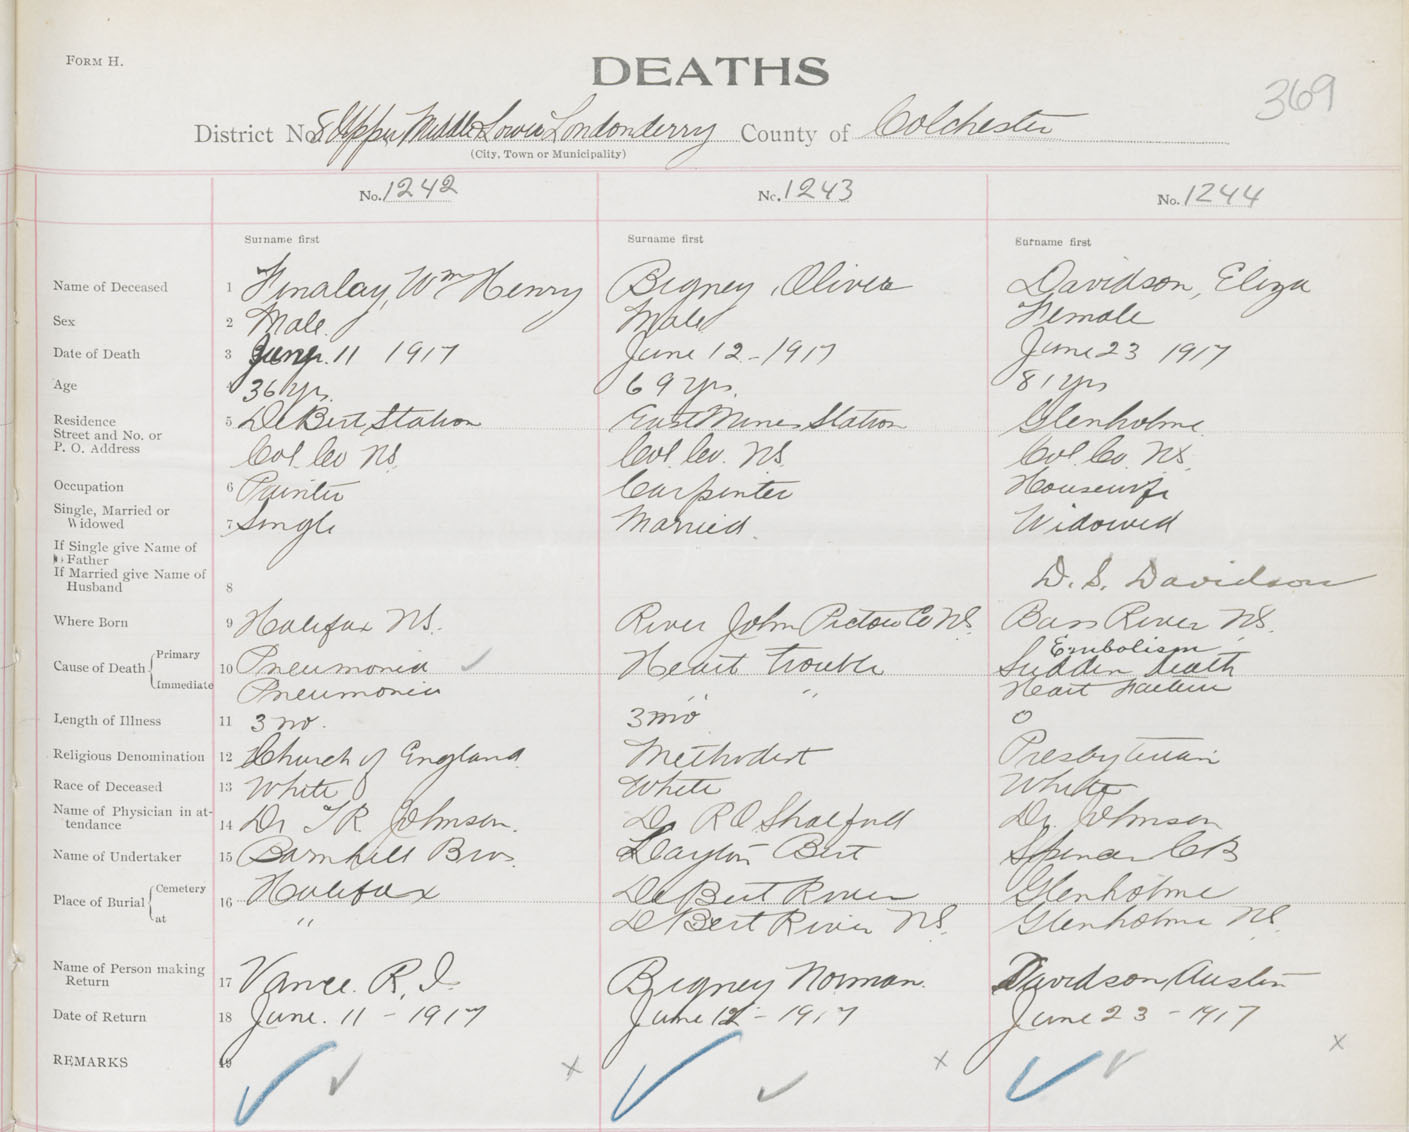 FORM H.
DEATHS
369
District No. 8 Upper, Middle, Lower Londonderry County of Colchester
(City, Town or Municipality)
No. 1242 No. 1243 No. 1244
Surname first Surname first Surname first
Name of Deceased 1 Finalay, Wm Henry Bigney, Oliver Davidson, Eliza
Sex 2 Male Male Female
Date of Death 3 June 11 1917 June 12 - 1917 June 23 1917
Age 4 36 yrs. 69 yrs. 81 yrs
Residence 5 DeBert Station East Mines Station Glenholme
Street and No. or
P. O. Address Col. Co NS. Col. Co. NS. Col. Co. NS.
Occupation 6 Painter Carpenter Housewife
Single, Married or
Widowed 7 Single Married. Widowed
If Single give Name of
Father
If Married give Name of
Husband 8 D. S. Davidson
Where Born 9 Halifax NS. River John Pictou Co NS. Bass River NS.
Embolism
Cause of Death Primary 10 Pneumonia Heart Trouble Sudden death
Immediate Pneumonia " " Heart Failure
Length of Illness 11 3 mo. 3 mo 0
Religious Denomination 12 Church of England Methodist Presbyterian
Race of Deceased 13 White White White
Name of Physician in at-
tendance 14 Dr T R Johnson. Dr R O Shatford Dr. Johnson
Name of Undertaker 15 Barnhill Bros. Layton Bert Spencer C B
Place of Burial Cemetery 16 Halifax DeBert River Glenholme
at " DeBert River NS. Glenholme NS.
Name of Person making
Return 17 Vance. R. I. Bigney Norman. Davidson, Austin
Date of Return 18 June. 11 - 1917 June 12 - 1917 June 23 - 1917
REMARKS 19 x x x